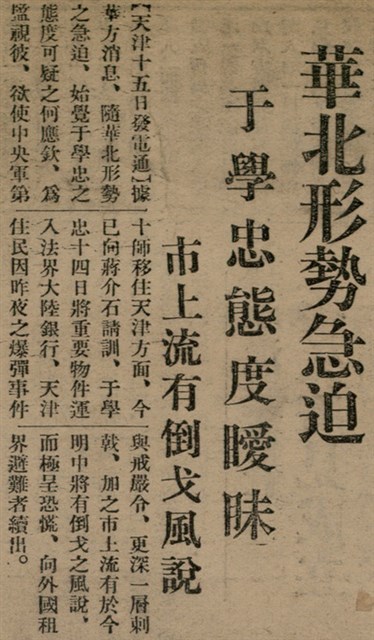 華北形勢急迫
于學忠態度曖昧
市上流有倒戈風說
【天津十五日發電通】據
華方消息、隨華北形勢
之急迫、始覺于學忠之
態度可疑之何應欽、爲
監視彼、欲使中央軍第
十師移住天津方面、今
已向蔣介石請訓、于學
忠十四日將重要物件運
入法界大陸銀行、天津
住民因昨夜之爆彈事件
與戒嚴令、更深一層刺
戟、加之市上流有於今
明中將有倒戈之風說、
而極呈恐慌、向外國租
界避難者續出。